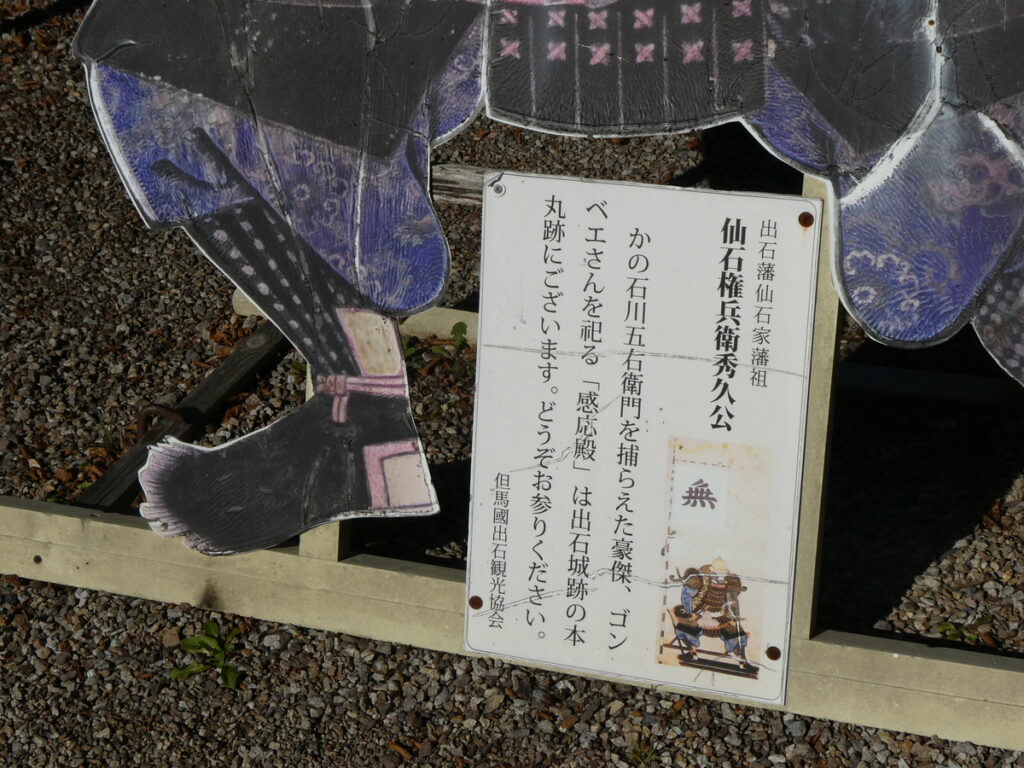 出石藩仙石家藩祖
仙石権兵衛秀久公
無
かの石川五右衛門を捕らえた豪傑、ゴン
ベエさんを祀る「感応殿」は出石城跡の本
丸跡にございます。どうぞお参りください。
但馬國出石観光協会